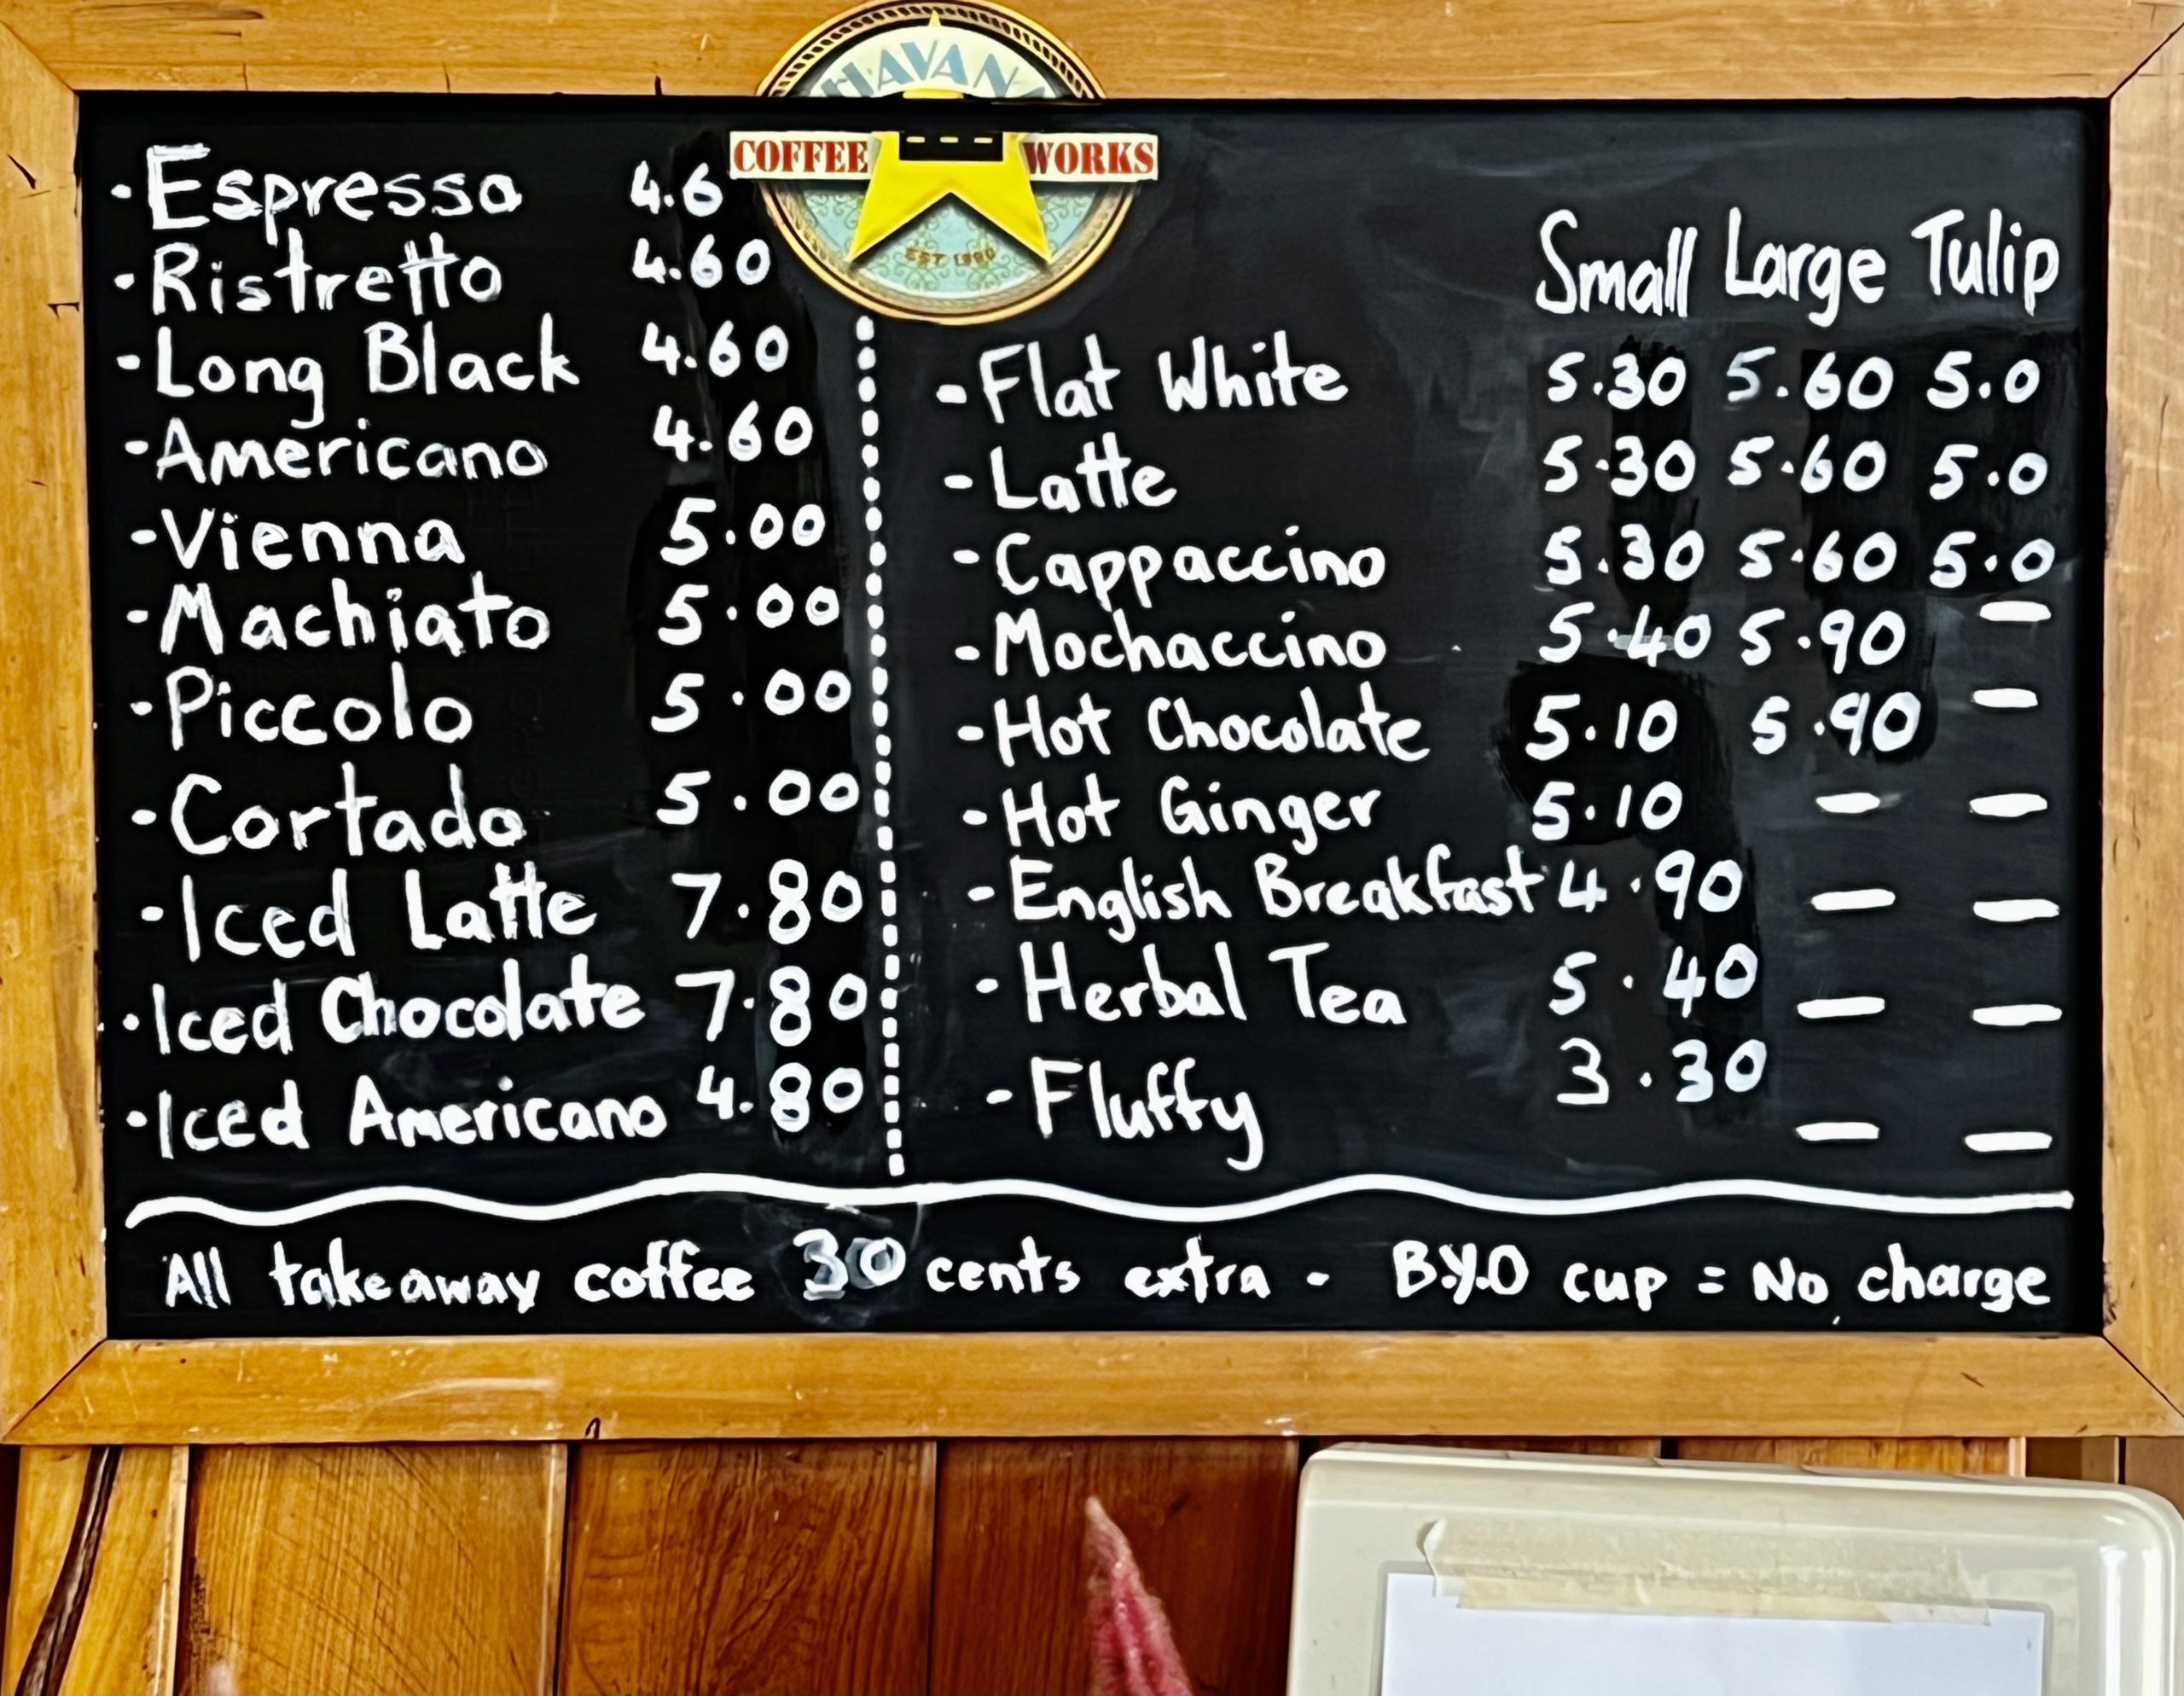 HAVANA
COFFEE WORKS
EST 1990
·Espresso 4.6
·Ristretto 4.60
-Long Black 4.60
-Americano 4.60
-Vienna 5.00
-Machiato 5.00
-Piccolo 5.00
·Cortado 5.00
·Iced Latte 7.80
·Iced Chocolate 7.80
·Iced Americano 4.80
Small Large Tulip
-Flat White 5.30 5.60 5.0
-Latte 5.30 5.60 5.0
-Cappaccino 5.30 5.60 5.0
-Mochaccino 5.40 5.90 -
-Hot Chocolate 5.10 5.90 -
-Hot Ginger 5.10 - -
-English Breakfast 4.90 - -
-Herbal Tea 5.40 - -
-Fluffy 3.30 - -
All takeaway coffee 30 cents extra - B.Y.O cup = No charge